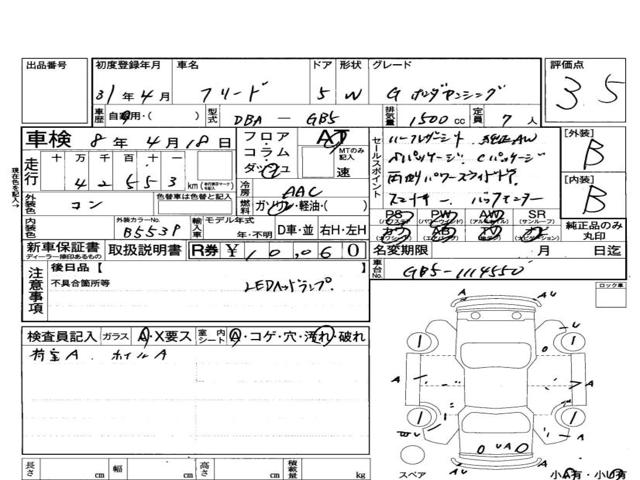 出品番号 初度登録年月 車名 ドア 形状 グレード 評価点
31年4月 フリード 5 W G ホンダセンシング 3.5
車歴 自家用・( ) 型式 DBA-GB5 排気量 1500cc 定員 7人
車検 8年4月18日 フロア・コラム・ダッシュ AT MTのみ記入 速
セールスポイント ハーフレザーシート 純正AW
Aパッケージ Cパッケージ
両側パワースライドドア
スマートキー バックモニター
[外装] B
[内装] B
走行 十万千百十 42653 km
現在色を記入→
外装色 コン 色替車は色替と記入
冷房 AAC
燃料 ガソリン・軽油・( )
内装色 外装カラーNo. B553P 輸入車 モデル年式 年・不明 D車・並 右H・左H
PS (パワステ) PW (パワーウィンド) AW (アルミホイル) SR (サンルーフ)
純正品のみ丸印
新車保証書 ディーラー捺印あるもの 取扱説明書 R券 ¥10,060 名変期限 月 日迄
車台No. GB5-1114550
注意事項 後日品【
不具合箇所等
LEDヘッドランプ.
ロック車
検査員記入 ガラス A・X要ス 室内シート A・コゲ・穴・汚れ・破れ
荷室A. ホイルA
A U
A
A
A U
A
U A
A
A U
スペア 小A有・小U有
長さ cm 幅 cm 高さ cm 積載量 kg